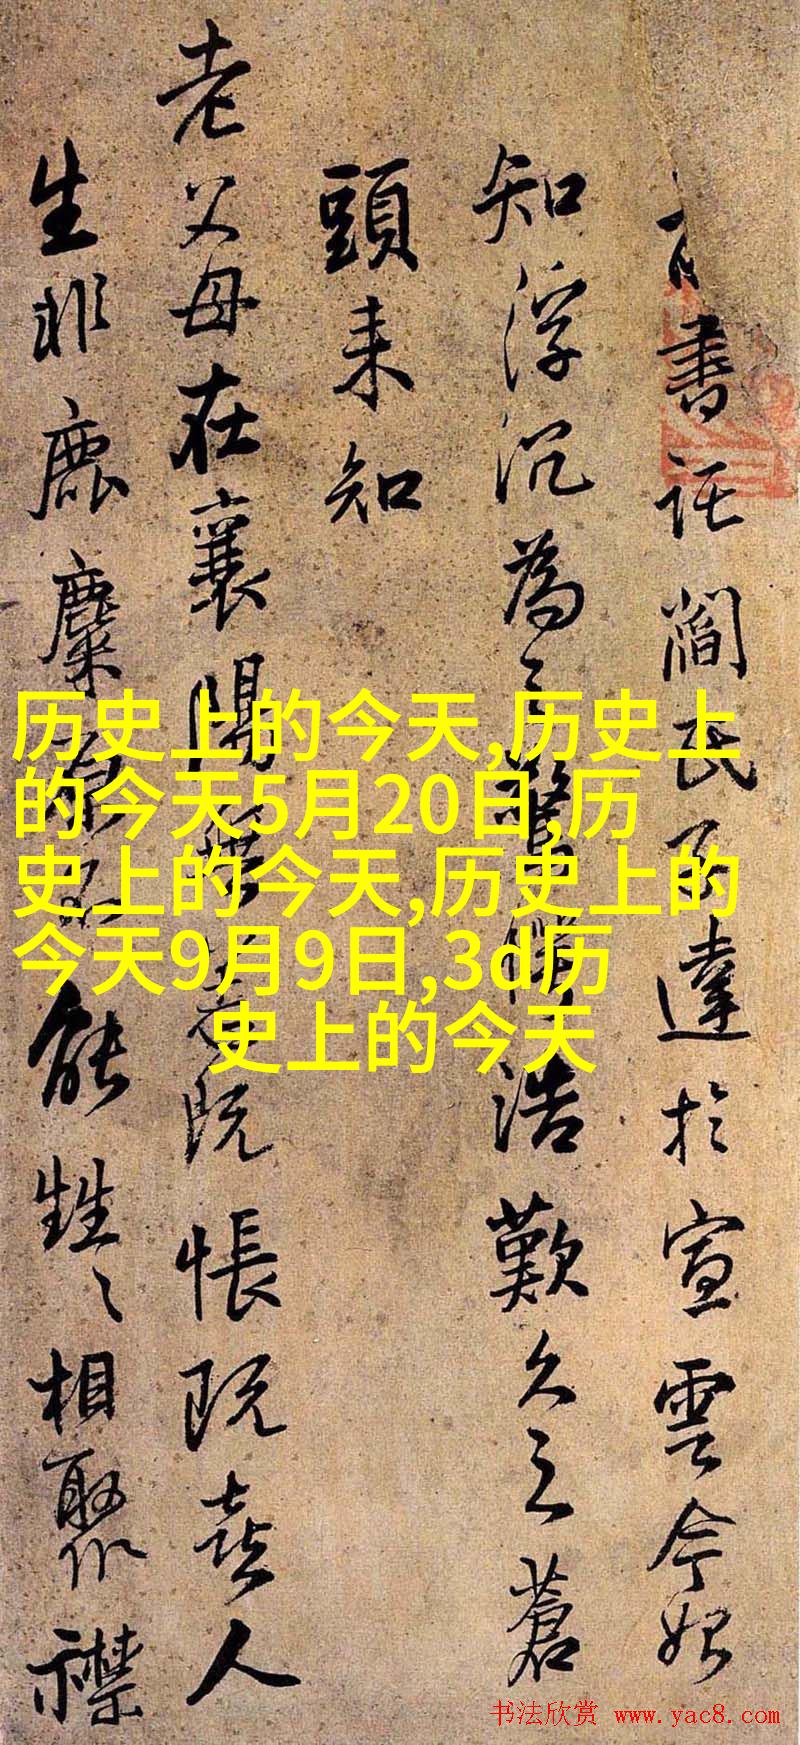 書 託 閻 氏 子 達 於 宣 雲 今 始
知 浮 沉 為 之 驚 浩 歎 久 之 蒼
頭 未 知
老 父 母 在 襄 陽 既 悵 既 喜 人
生 非 鹿 麋 能 甡 〻 相 聚 襟
历史上的今天,历史上
的今天5月20日,历
史上的今天,历史上的
今天9月9日,3d历
史上的今天
书法欣赏 www.yac8.com